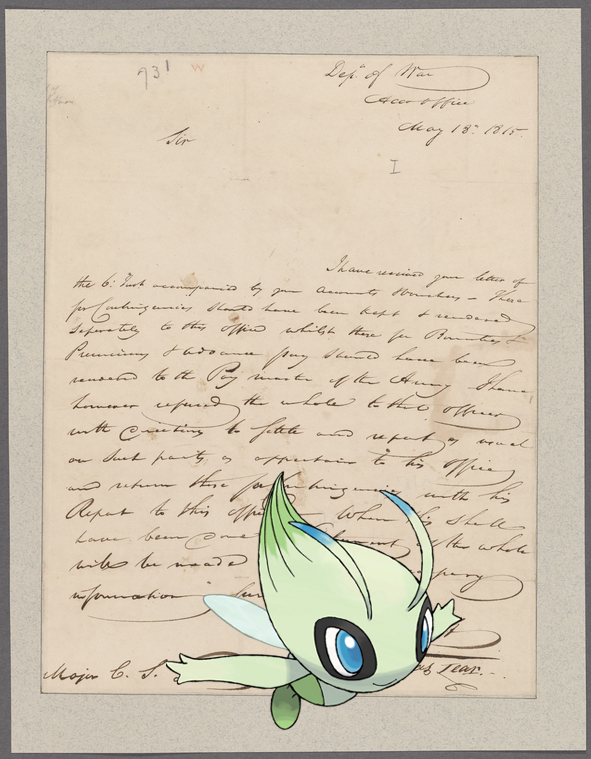 731
Dept. of War
Acco. Office
May 18th 1815
Sir
I have received your letter of
the 6. Inst accompanied by your accounts & vouchers – Those
for Contingencies should have been kept & rendered
separately to this office whilst those for Bounties &
Premiums & advance pay should have been
rendered to the Pay master of the Army I have
however referred the whole to that officer
with directions to settle and report as usual
on such parts as appertain to his office
and return those for Contingencies with his
Report to this office When this shall
have been done of the whole
will be made
information
Major C. S.
Lear.